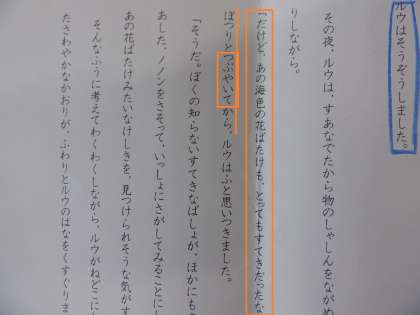 ルウはそうぞうしました。
その夜、ルウは、すあなでたから物のしゃしんをながめ
りしながら。
「だけど、あの海色の花ばたけも、とってもすてきだったな
ぽつりとつぶやいてから、ルウはふと思いつきました。
「そうだ。ぼくの知らないすてきなばしょが、ほかにもき
あした、ノノンをさそって、いっしょにさがしてみることにし
あの花ばたけみたいなけしきを、見つけられそうな気がす
そんなふうに考えてわくわくしながら、ルウがねどこに
たさわやかなかおりが、ふわりとルウのはなをくすぐりま